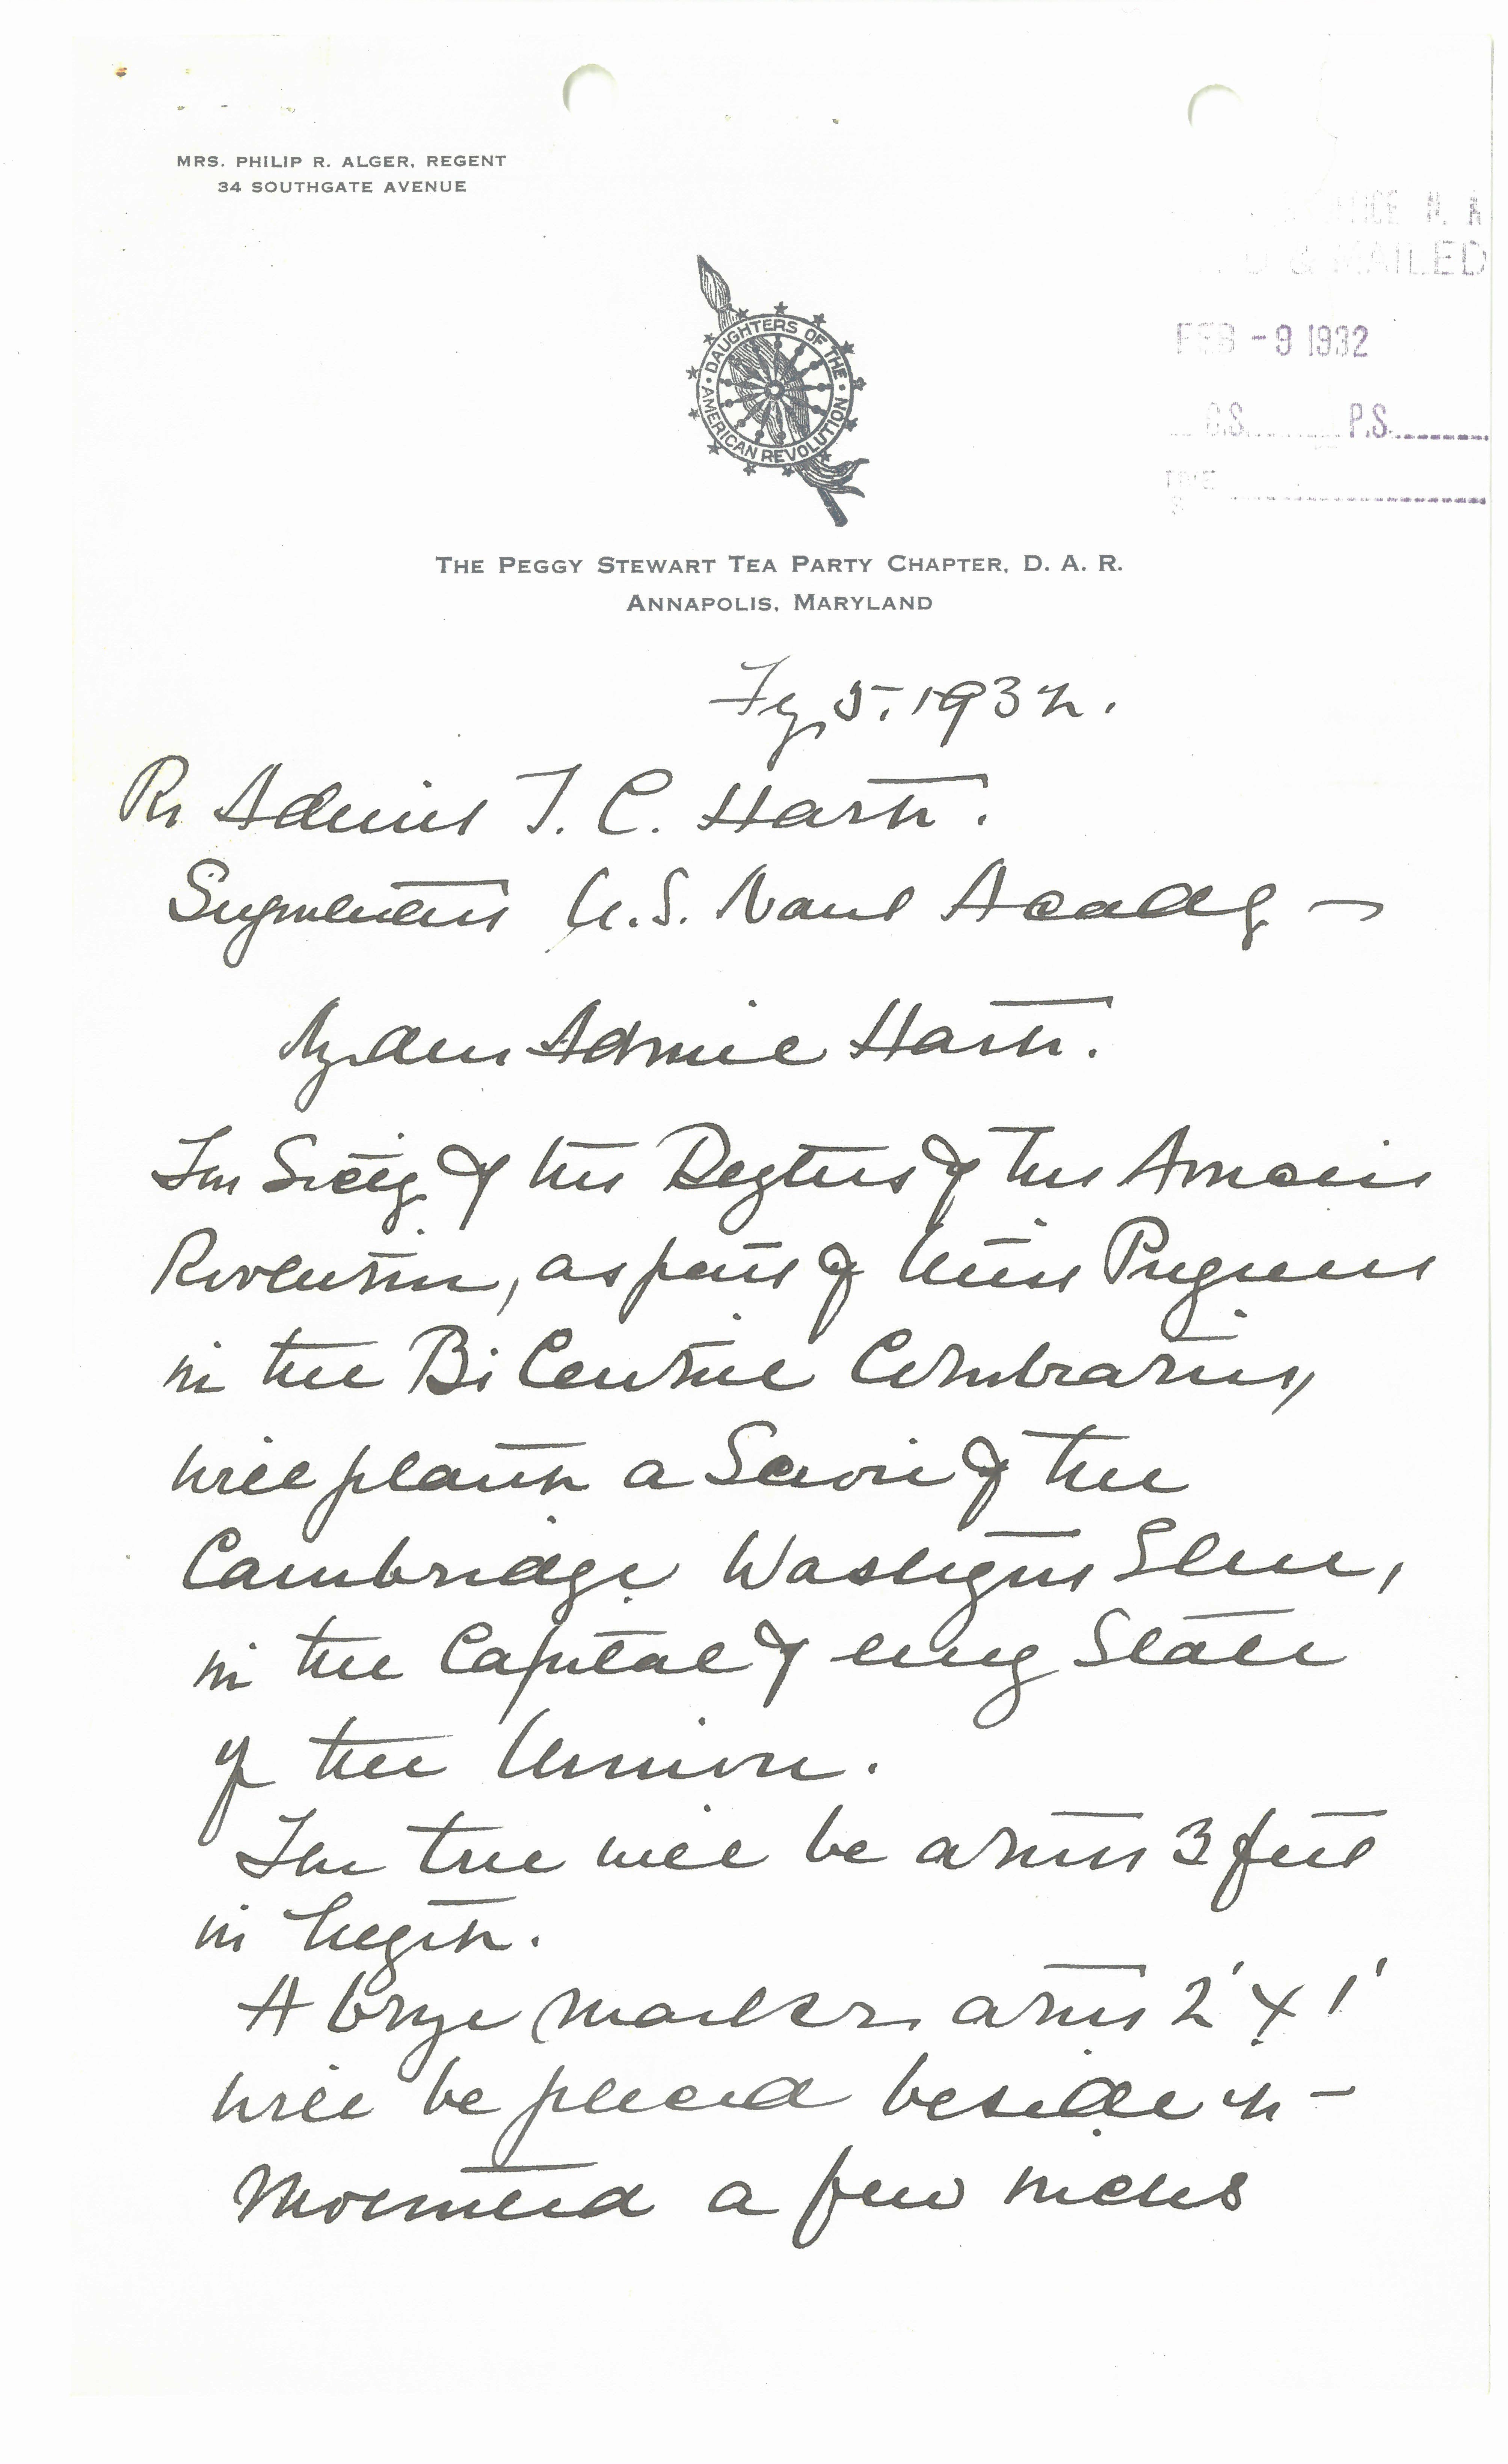 MRS. PHILIP R. ALGER, REGENT
34 SOUTHGATE AVENUE
& MAILED
FEB -9 1932
C.S. P.S.
DAUGHTERS OF THE AMERICAN REVOLUTION
THE PEGGY STEWART TEA PARTY CHAPTER, D. A. R.
ANNAPOLIS, MARYLAND
Fy 5. 1932.
Rr Admiral T. C. Hart.
Superintendent U.S. Naval Academy —
My dear Admiral Hart.
The Society of the Daughters of the American
Revolution, as part of their Program
in the Bi Centennial Celebration,
will plant a Scion of the
Cambridge Washington Elm,
in the Capital of every State
of the Union.
The tree will be about 3 feet
in height.
A bronze marker about 2' x 1'
will be placed beside it —
Mounted a few inches